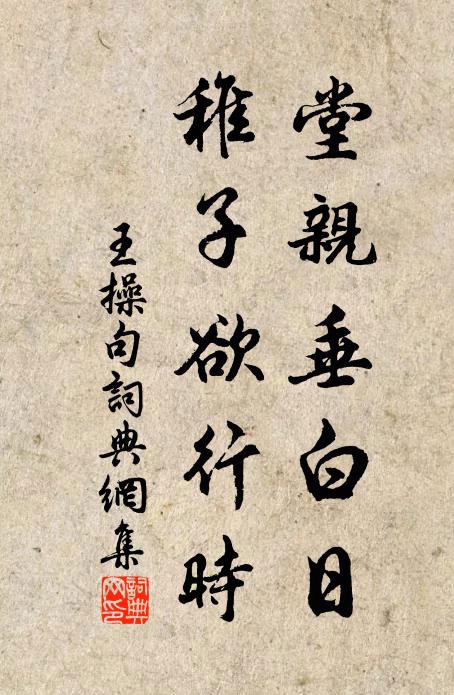 堂親垂白日
稚子欲行時
王操句詞典網集
詞典